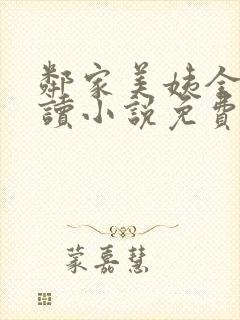 鄰家美姨全
讀小說免費
蒙嘉慧